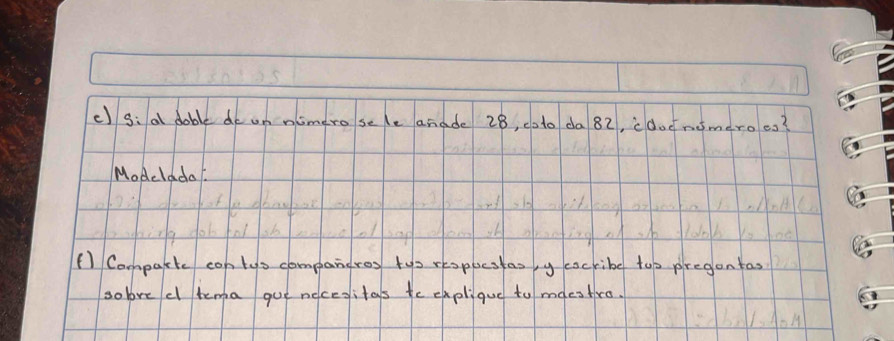 e) Si al doble de un número se le añade 28, esto da 82, ¿Qué número es?
Modelada:
f) Comparte con tus compañeros tus respuestas, y escribe tus preguntas
sobre el tema que necesitas te explique tu maestra.